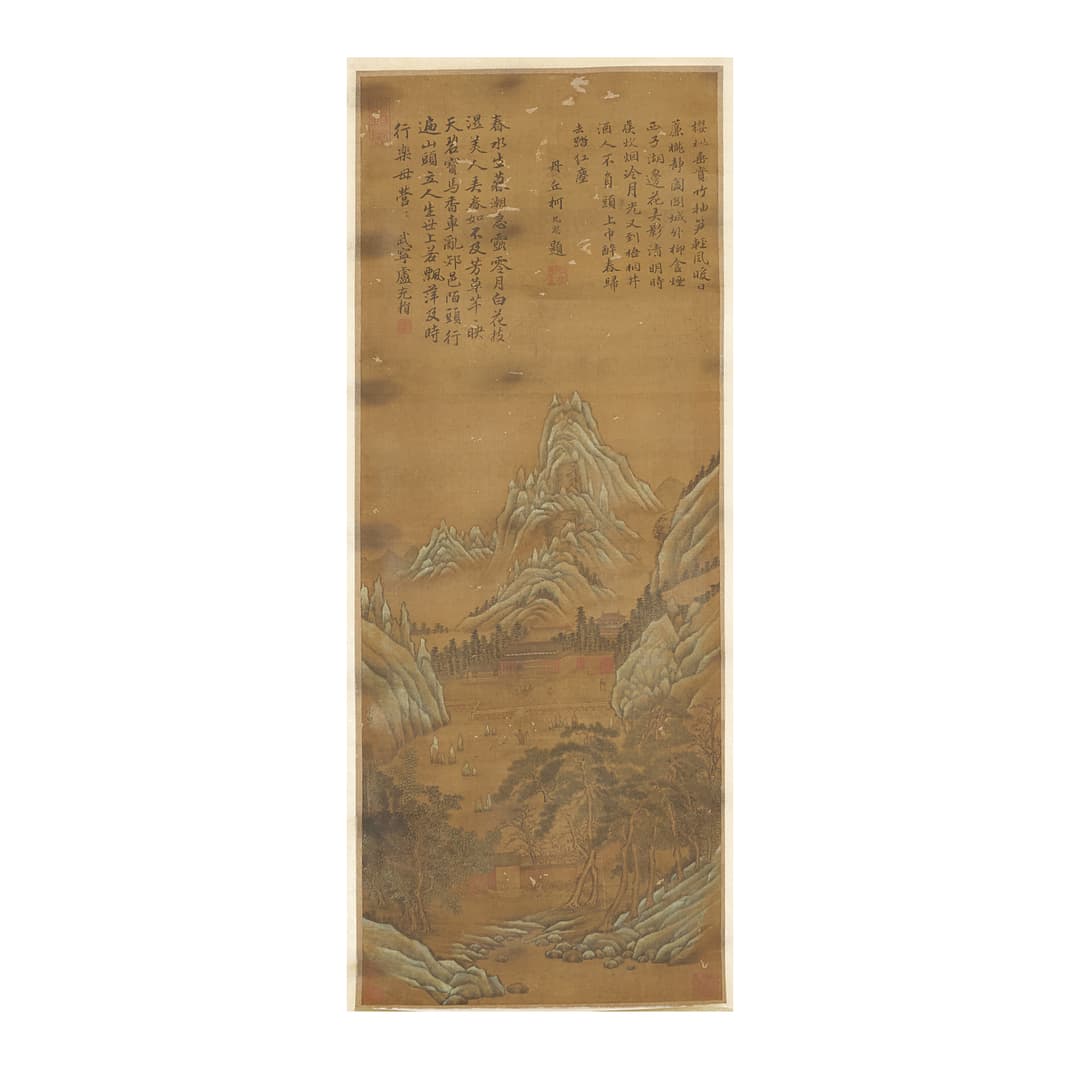 櫻桃垂實竹抽笋輕風暖日
簾櫳靜闔閭城外柳含煙
西子湖邊花影清明時
候炊烟冷月光又到梧桐井
酒人不負頭上巾醉春歸
去踏紅塵
丹丘柯九思題
春水生暮潮急零月白花枝
濕美人春如不及芳草芊〻映
天碧寶馬香車亂郊邑陌頭行
遍山頭立人生世上若飄萍及時
行樂毋營〻 武寧盧充